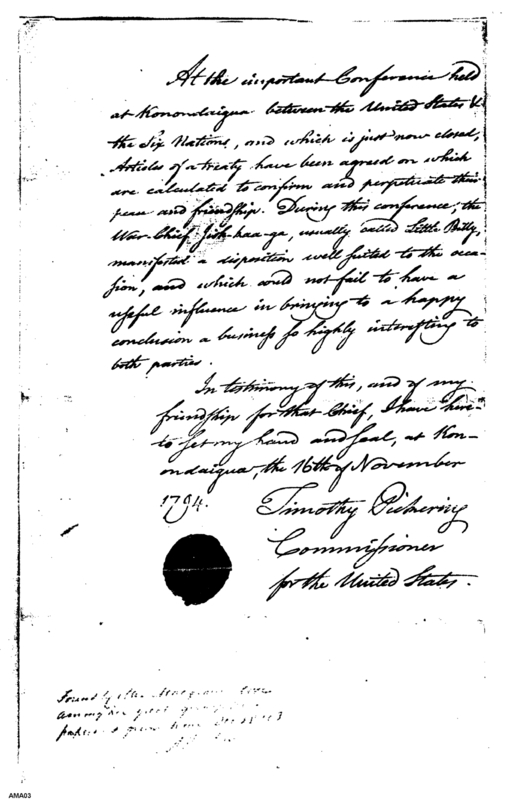 At the important Conference held
at Konondaigua between the United States &
the Six Nations, and which is just now closed,
Articles of a treaty have been agreed on which
are calculated to confirm and perpetuate their
peace and friendship. During this conference, the
War-Chief Jish-kaa-ga, usually called Little Billy,
manifested a disposition well suited to the occa-
sion, and which could not fail to have a
useful influence in bringing to a happy
conclusion a business so highly interesting to
both parties.
In testimony of this, and of my
friendship for that Chief, I have here-
to set my hand and seal, at Kon-
ondaigua, the 16th of November
1794.
Timothy Pickering
Commissioner
for the United States.
Found by
among her great
papers
AMA03